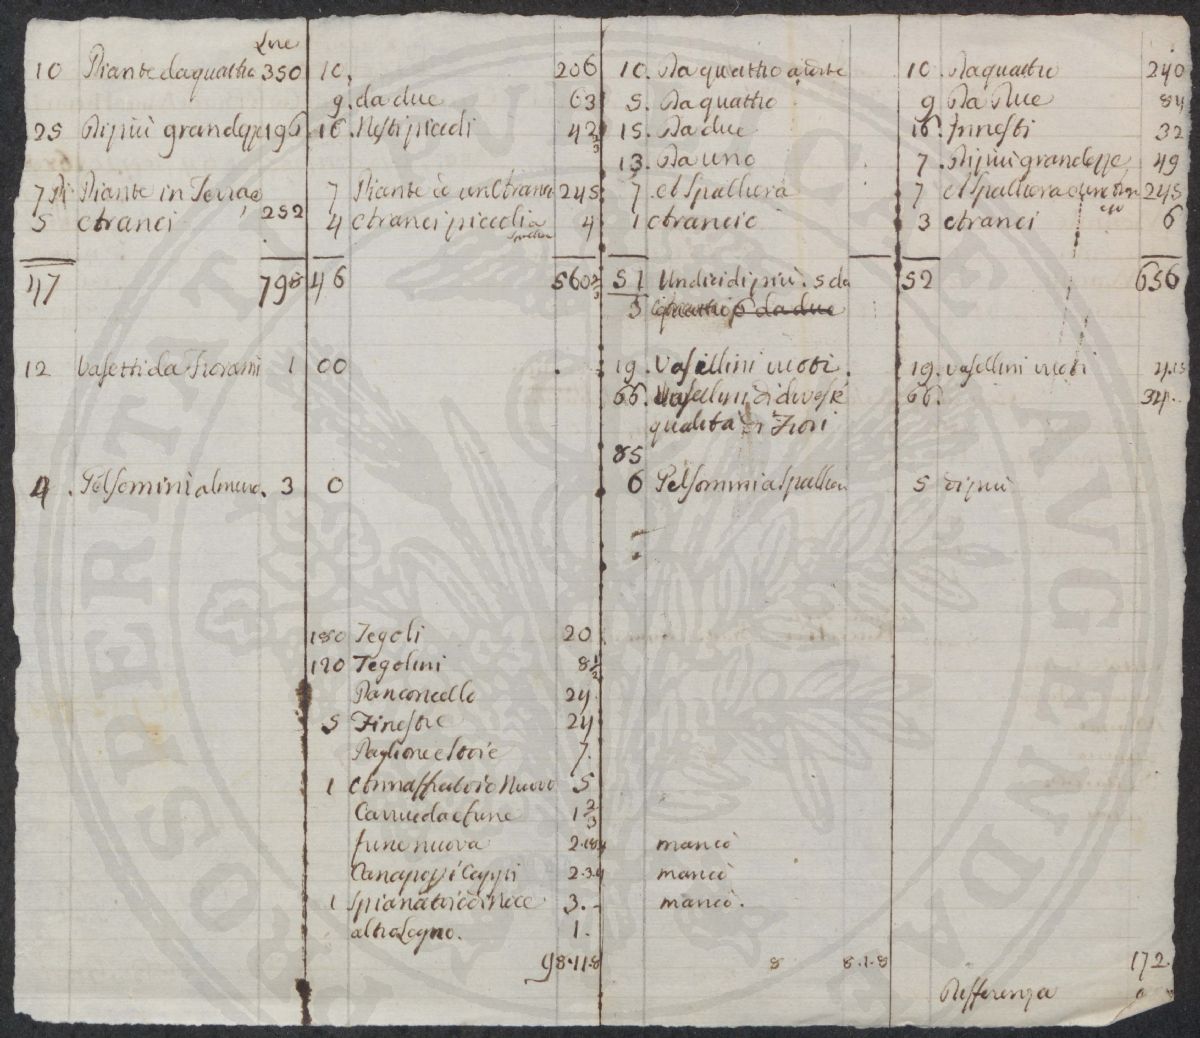 Lire
10 Piante da quattro 350 | 10. 206 | 10. Da quattro a | 10. Da quattro 240
9. da due 63 | 5. Da quattro | 9 Da Due 84
25 Di più grandezze 196 | 16. Nesti piccoli 42 2/3 | 15. Da due | 16. Innesti 32
13. Da uno | 7. Di più grandezze 49
7 Piante in Terra e | 7 Piante è un Aranci 245 | 7 a Spalliera | 7 a Spalliera 245
5 Aranci 252 | 4 Aranci piccoli a spalliera 4 | 1 Arancio | 3 Aranci 6
47 798 | 46 560 2/3 | 51 Undici di più. 5 da | 52 656
5 quattro 6 da due
12 Vasetti da Fiorami 1 | 00 | 19. Vasellini vuoti. | 19. vasellini vuoti
66. Vasellini di diverse | 66. 34
qualità di Fiori
85
4. Gelsomini al muro. 3 | 0 | 6 Gelsomini a Spalliera | 5 di più
180 Tegoli 20
120 Tegolini 8 1/2
Panconcelle 24
5 Finestre 24
Paglione e stoie 7.
1 Annaffiatoio Nuovo 5
Carrucola e fune 1 2/3
fune nuova 2.18.4 | mancò
Canapozzi Cappi 2.3.4 | mancò
1 Spianatoio di Noce 3.- | mancò.
altro Legno. 1.
98.11.8 | 8 8.1.8 | 172.
Differenza
PROSPERITATE PUBLICAE AUGENDAE